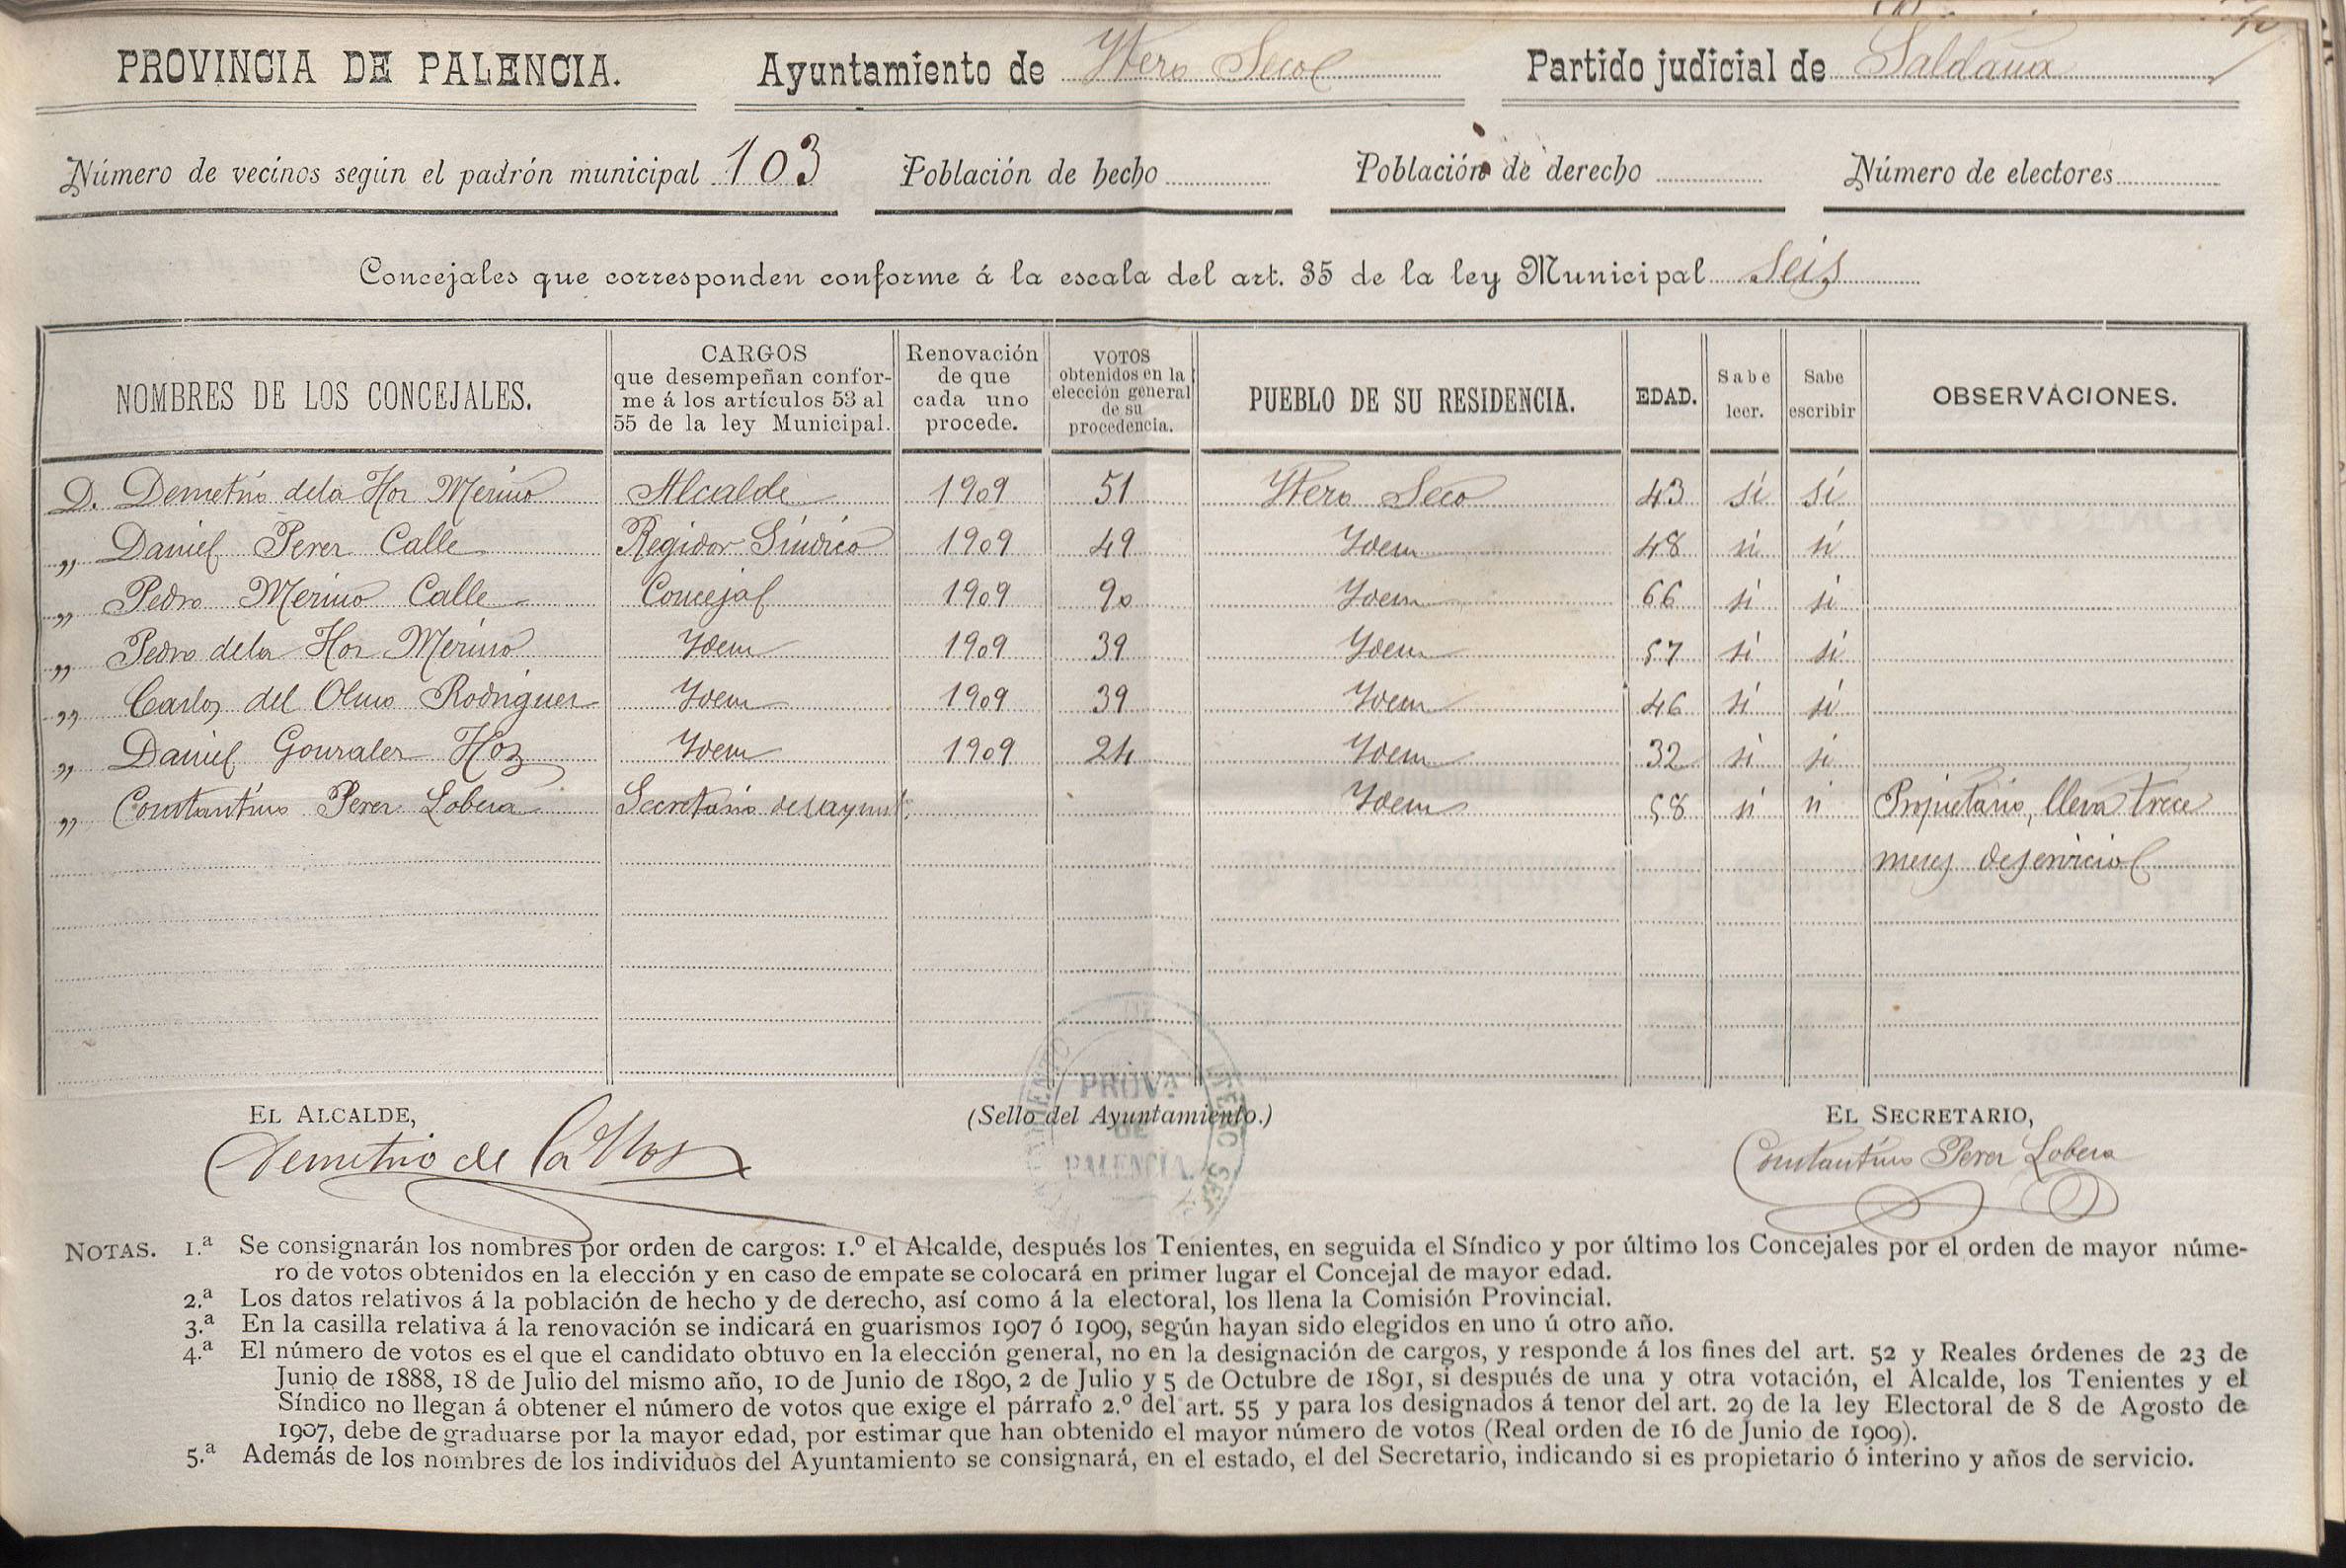 PROVINCIA DE PALENCIA. Ayuntamiento de Ytero Seco Partido judicial de Saldaña
Número de vecinos según el padrón municipal 103 Población de hecho Población de derecho Número de electores
Concejales que corresponden conforme á la escala del art. 35 de la ley Municipal Seis
NOMBRES DE LOS CONCEJALES. CARGOS que desempeñan confor-me á los artículos 53 al 55 de la ley Municipal. Renovación de que cada uno procede. VOTOS obtenidos en la elección general de su procedencia. PUEBLO DE SU RESIDENCIA. EDAD. Sabe leer. Sabe escribir OBSERVACIONES.
D. Demetrio de la Hoz Merino Alcalde 1909 51 Ytero Seco 43 si si
„ Daniel Perez Calle Regidor Síndico 1909 49 Ydem 48 si si
„ Pedro Merino Calle Concejal 1909 90 Ydem 66 si si
„ Pedro de la Hoz Merino Ydem 1909 39 Ydem 57 si si
„ Carlos del Olmo Rodriguez Ydem 1909 39 Ydem 46 si si
„ Daniel Gonzalez Hoz Ydem 1909 24 Ydem 32 si si
„ Constantino Perez Lobera Secretario del ayunt.º Ydem 58 si si Propietario, lleva trece
meses de servicio
EL ALCALDE, (Sello del Ayuntamiento.) EL SECRETARIO,
Demetrio de la Hoz Constantino Perez Lobera
PROVA
DE
PALENCIA.
NOTAS. 1.ª Se consignarán los nombres por orden de cargos: 1.º el Alcalde, después los Tenientes, en seguida el Síndico y por último los Concejales por el orden de mayor núme-
ro de votos obtenidos en la elección y en caso de empate se colocará en primer lugar el Concejal de mayor edad.
2.ª Los datos relativos á la población de hecho y de derecho, así como á la electoral, los llena la Comisión Provincial.
3.ª En la casilla relativa á la renovación se indicará en guarismos 1907 ó 1909, según hayan sido elegidos en uno ú otro año.
4.ª El número de votos es el que el candidato obtuvo en la elección general, no en la designación de cargos, y responde á los fines del art. 52 y Reales órdenes de 23 de
Junio de 1888, 18 de Julio del mismo año, 10 de Junio de 1890, 2 de Julio y 5 de Octubre de 1891, si después de una y otra votación, el Alcalde, los Tenientes y el
Síndico no llegan á obtener el número de votos que exige el párrafo 2.º del art. 55 y para los designados á tenor del art. 29 de la ley Electoral de 8 de Agosto de
1907, debe de graduarse por la mayor edad, por estimar que han obtenido el mayor número de votos (Real orden de 16 de Junio de 1909).
5.ª Además de los nombres de los individuos del Ayuntamiento se consignará, en el estado, el del Secretario, indicando si es propietario ó interino y años de servicio.